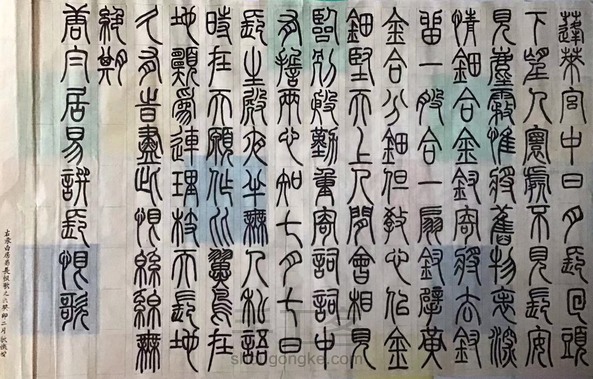 蓬萊宮中日月長回頭
下望人寰處不見長安
見塵霧惟將舊物表深
情鈿合金釵寄將去釵
留一股合一扇釵擘黃
金合分鈿但教心似金
鈿堅天上人間會相見
臨別殷勤重寄詞詞中
有誓兩心知七月七日
長生殿夜半無人私語
時在天願作比翼鳥在
地願爲連理枝天長地
久有時盡此恨綿綿無
絕期
唐白居易詩長恨歌
右录白居易長恨歌之六癸卯二月